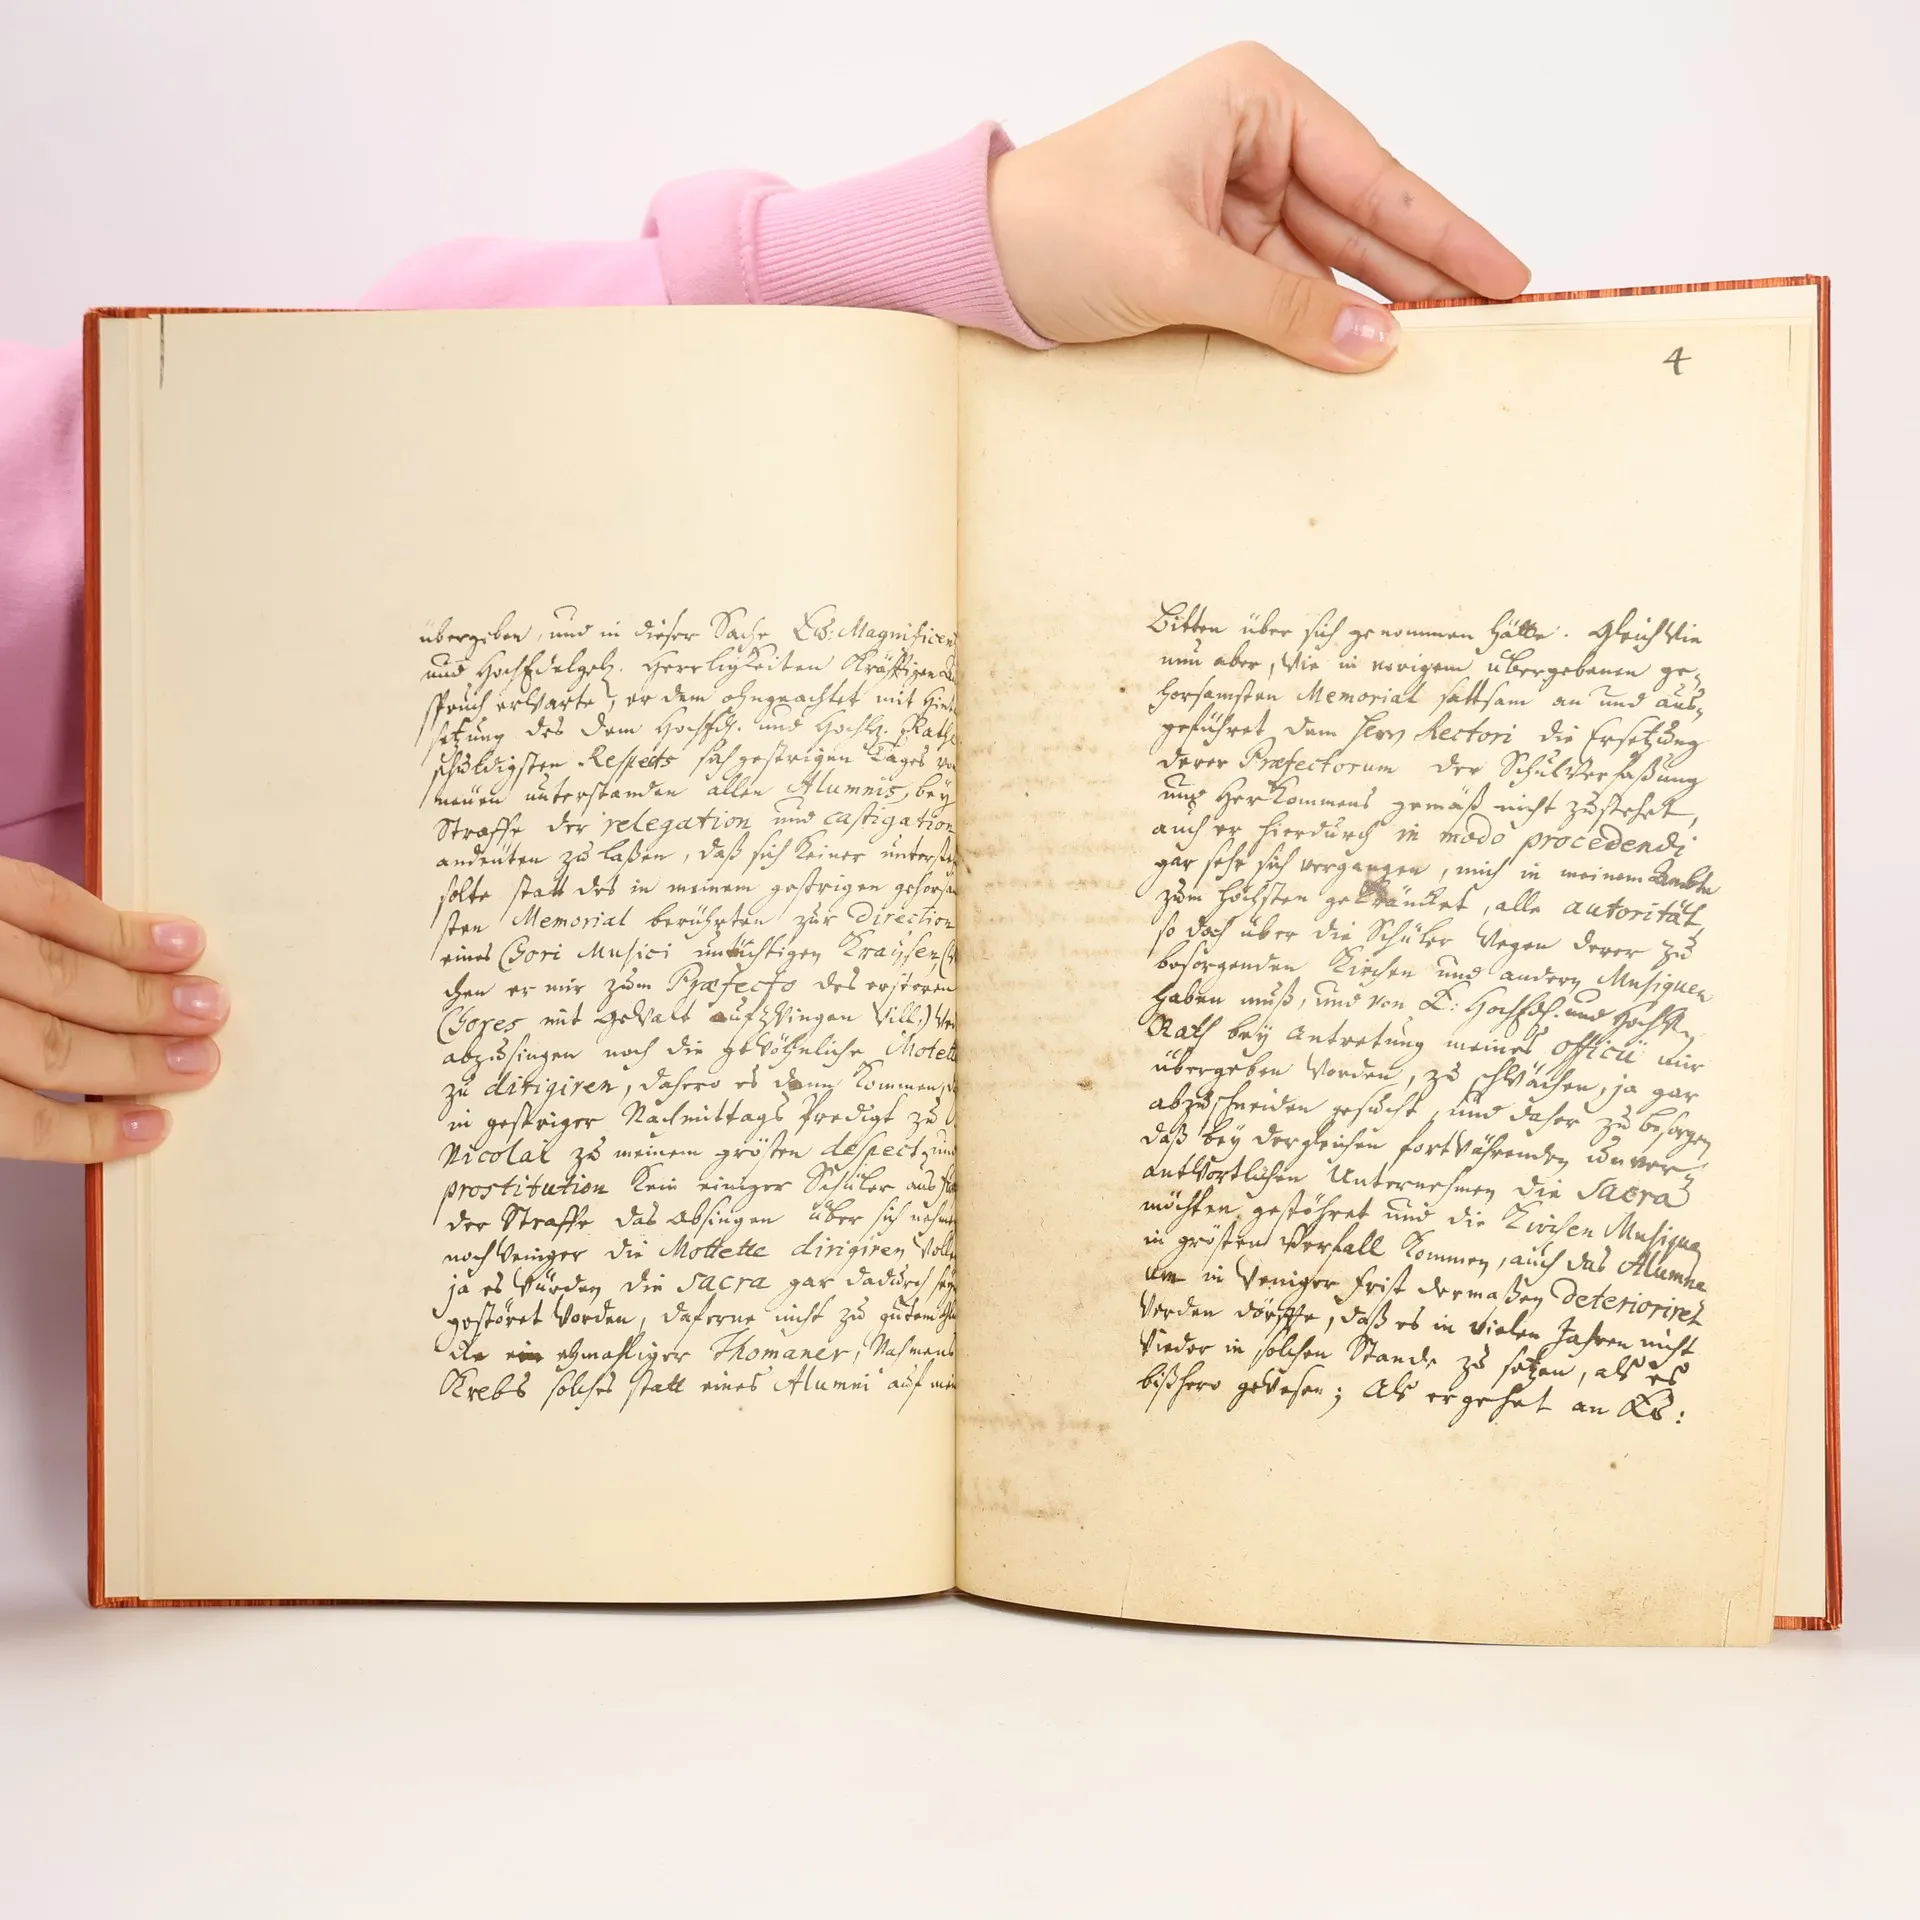 übergeben, und in dieser Sache Ew: Magnificen
und HochEdelgeb. Herrligkeiten kräfftigen
spruch erwarte, er dem ohngeachtet mit Hint
setzung des dem HochEdl. und Hochw. Rathe
schuldigsten Respects sich gestrigen Tages vo
neüen unterstanden allen Alumnis, bey
Straffe der relegation und castigation
andeüten zu laßen, daß sich keiner unterste
solte statt des in meinem gestrigen gehorsa
sten Memorial berührten zur Direction
eines Chori Musici untüchtigen Kraüsen,
chen er mir zum Præfecto des ersteren
Chores mit Gewalt aufzwingen will,)
abzusingen noch die gewöhnliche Motett
zu dirigiren, dahero es denn kommen, d
in gestriger Nachmittags Predigt zu
Nicolai zu meinem grösten despect, und
prostitution kein einiger Schüler aus
der Straffe das Absingen über sich nehm
noch weniger die Mottette dirigiren woll
ja es würden die Sacra gar dadurch sey
gestöret worden, daferne nicht zu gutem
ein ehmahliger Thomaner, Nahmens
Krebs solches statt eines Alumni auf mei
4
Bitten über sich genommen hätte. Gleich wie
nun aber, wie in vorigem übergebenen ge-
horsamsten Memorial sattsam an und aus-
geführet dem Herrn Rectori die Ersetzung
derer Præfectorum der Schul Verfaßung
und Herkommens gemäß nicht zustehet,
auch er hierdurch in modo procedendi
gar sehr sich vergangen, mich in meinem Ambte
zum höchsten gekräncket, alle autorität,
so doch über die Schüler wegen derer zu
besorgenden Kirchen und andern Musiquen
haben muß, und von E: HochEdl. und Hochw.
Rath bey Antretung meines officii mir
übergeben worden, zu schwächen, ja gar
abzuschneiden gesucht, und daher zu besorgen
daß bey dergleichen fortwährenden unver-
antwortlichen Unternehmen die Sacra
möchten gestöhret und die Kirchen Musiquen
in grösten Verfall kommen, auch das Alumne
um in weniger Frist dermaßen deterioriret
werden dörffte, daß es in vielen Jahren nicht
wieder in solchen Stande zu setzen, als es
bißhero gewesen; Als ergehet an Ew: